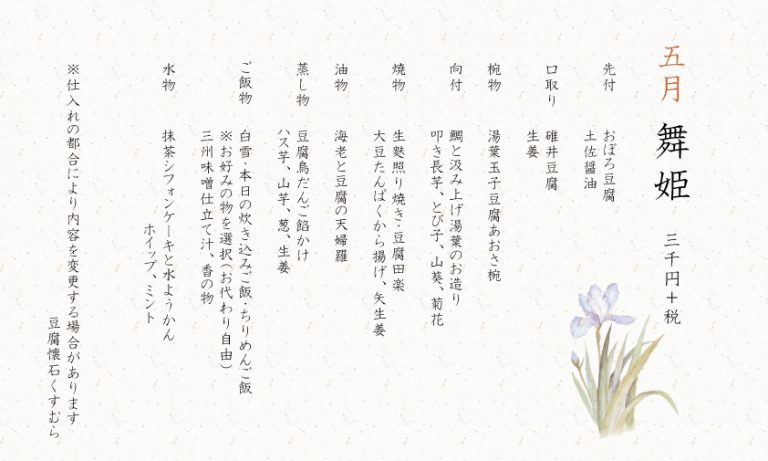 五月 舞姫 三千円＋税
先付 おぼろ豆腐
土佐醤油
口取り 碓井豆腐
生姜
椀物 湯葉玉子豆腐あおさ椀
向付 鯛と汲み上げ湯葉のお造り
叩き長芋、とび子、山葵、菊花
焼物 生麩照り焼き・豆腐田楽
大豆たんぱくから揚げ、矢生姜
油物 海老と豆腐の天婦羅
蒸し物 豆腐鳥だんご餡かけ
ハス芋、山芋、葱、生姜
ご飯物 白雪・本日の炊き込みご飯・ちりめんご飯
※お好みの物を選択（お代わり自由）
三州味噌仕立て汁、香の物
水物 抹茶シフォンケーキと水ようかん
ホイップ、ミント
※仕入れの都合により内容を変更する場合があります
豆腐懐石くすむら